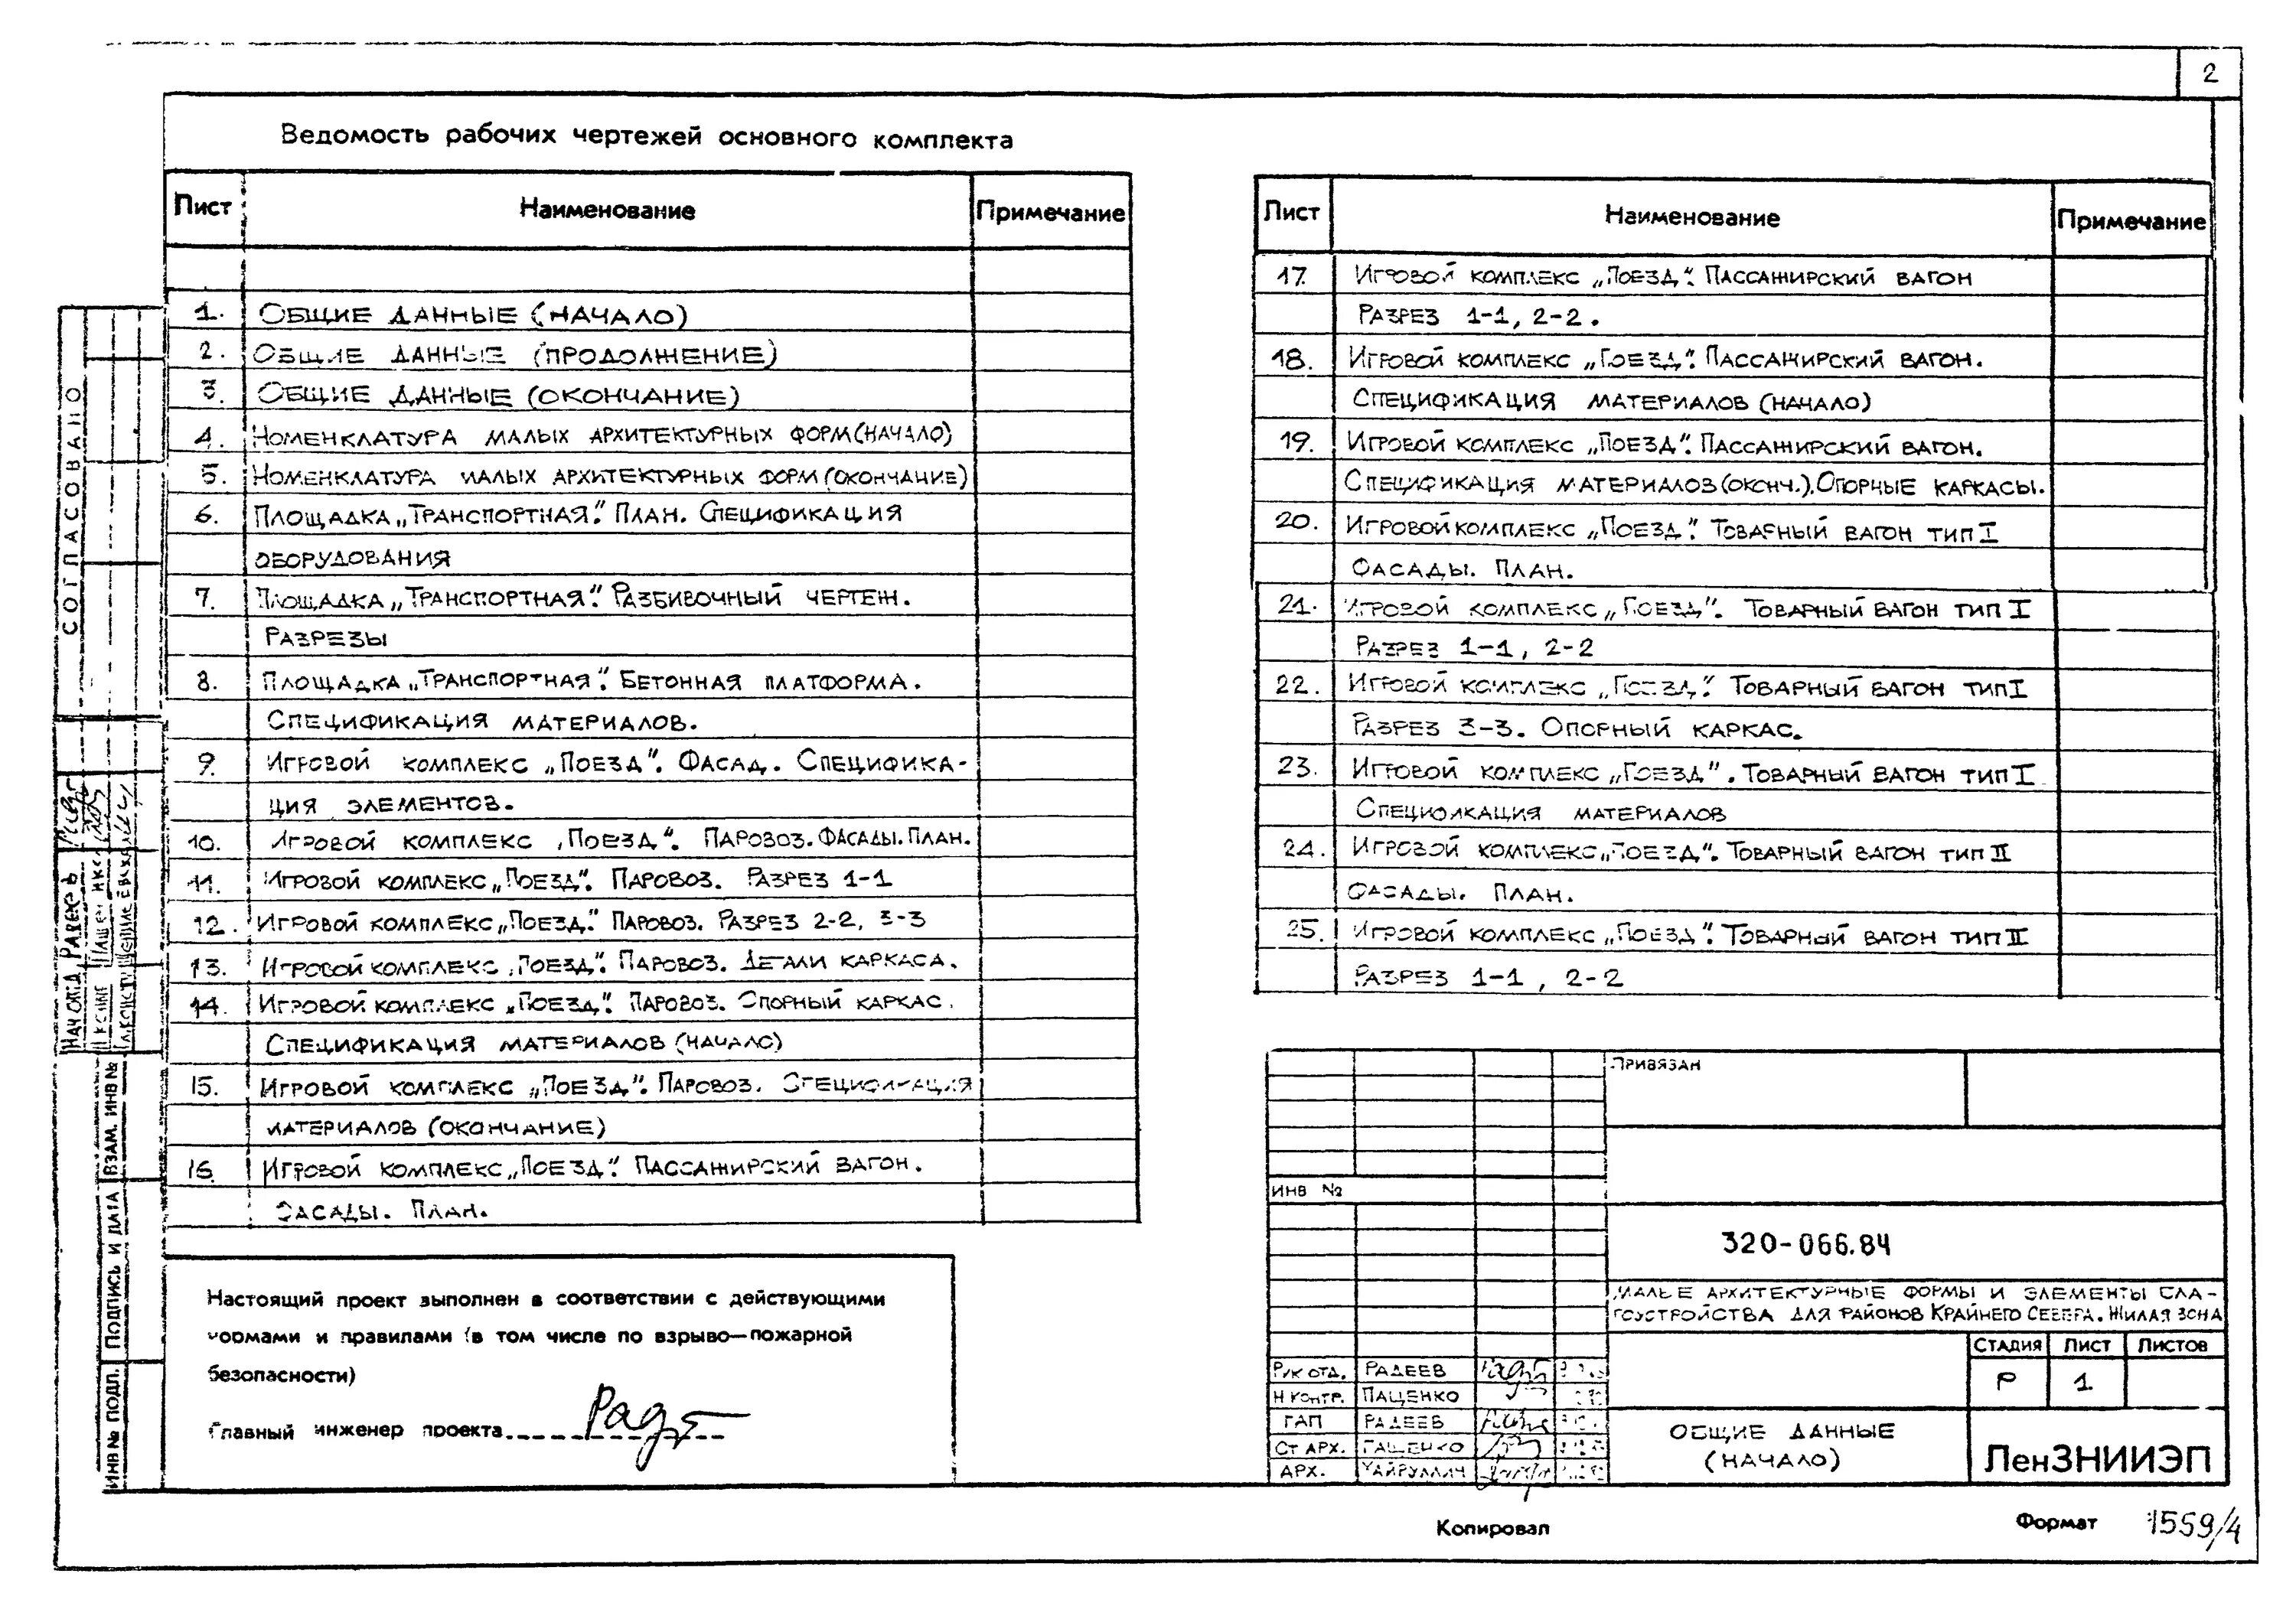 2
Ведомость рабочих чертежей основного комплекта
Лист Наименование Примечание
1. Общие данные (начало)
2. Общие данные (продолжение)
3. Общие данные (окончание)
4. Номенклатура малых архитектурных форм (начало)
5. Номенклатура малых архитектурных форм (окончание)
6. Площадка „Транспортная". План. Спецификация
оборудования
7. Площадка „Транспортная". Разбивочный чертеж.
Разрезы
8. Площадка „Транспортная". Бетонная платформа.
Спецификация материалов.
9. Игровой комплекс „Поезд". Фасад. Специфика-
ция элементов.
10. Игровой комплекс „Поезд". Паровоз. Фасады. План.
11. Игровой комплекс „Поезд". Паровоз. Разрез 1-1
12. Игровой комплекс „Поезд". Паровоз. Разрез 2-2, 3-3
13. Игровой комплекс „Поезд". Паровоз. Детали каркаса.
14. Игровой комплекс „Поезд". Паровоз. Опорный каркас.
Спецификация материалов (начало)
15. Игровой комплекс „Поезд". Паровоз. Спецификация
материалов (окончание)
16. Игровой комплекс „Поезд". Пассажирский вагон.
Фасады. План.
Лист Наименование Примечание
17. Игровой комплекс „Поезд". Пассажирский вагон
Разрез 1-1, 2-2.
18. Игровой комплекс „Поезд". Пассажирский вагон.
Спецификация материалов (начало)
19. Игровой комплекс „Поезд". Пассажирский вагон.
Спецификация материалов (оконч.). Опорные каркасы.
20. Игровой комплекс „Поезд". Товарный вагон тип I
Фасады. План.
21. Игровой комплекс „Поезд". Товарный вагон тип I
Разрез 1-1, 2-2
22. Игровой комплекс „Поезд". Товарный вагон тип I
Разрез 3-3. Опорный каркас.
23. Игровой комплекс „Поезд". Товарный вагон тип I
Специфıкация материалов
24. Игровой комплекс „Поезд". Товарный вагон тип II
Фасады. План.
25. Игровой комплекс „Поезд". Товарный вагон тип II
Разрез 1-1, 2-2
Настоящий проект выполнен в соответствии с действующими
нормами и правилами (в том числе по взрыво—пожарной
безопасности)
Главный инженер проекта
Привязан
Инв №
320-066.84
Малые архитектурные формы и элементы бла-
гоустройства для районов Крайнего Севера. Жилая зона
Стадия Лист Листов
Р 1
Рук отд. Радеев
Н контр. Пащенко
ГАП Радеев
Ст арх. Пащенко
Арх.
Общие данные
(начало)
ЛенЗНИИЭП
Копировал
Формат 1559/4
СОГЛАСОВАНО
Нач отд Радеев
ИНВ № ПОДЛ. ПОДПИСЬ И ДАТА ВЗАМ. ИНВ №